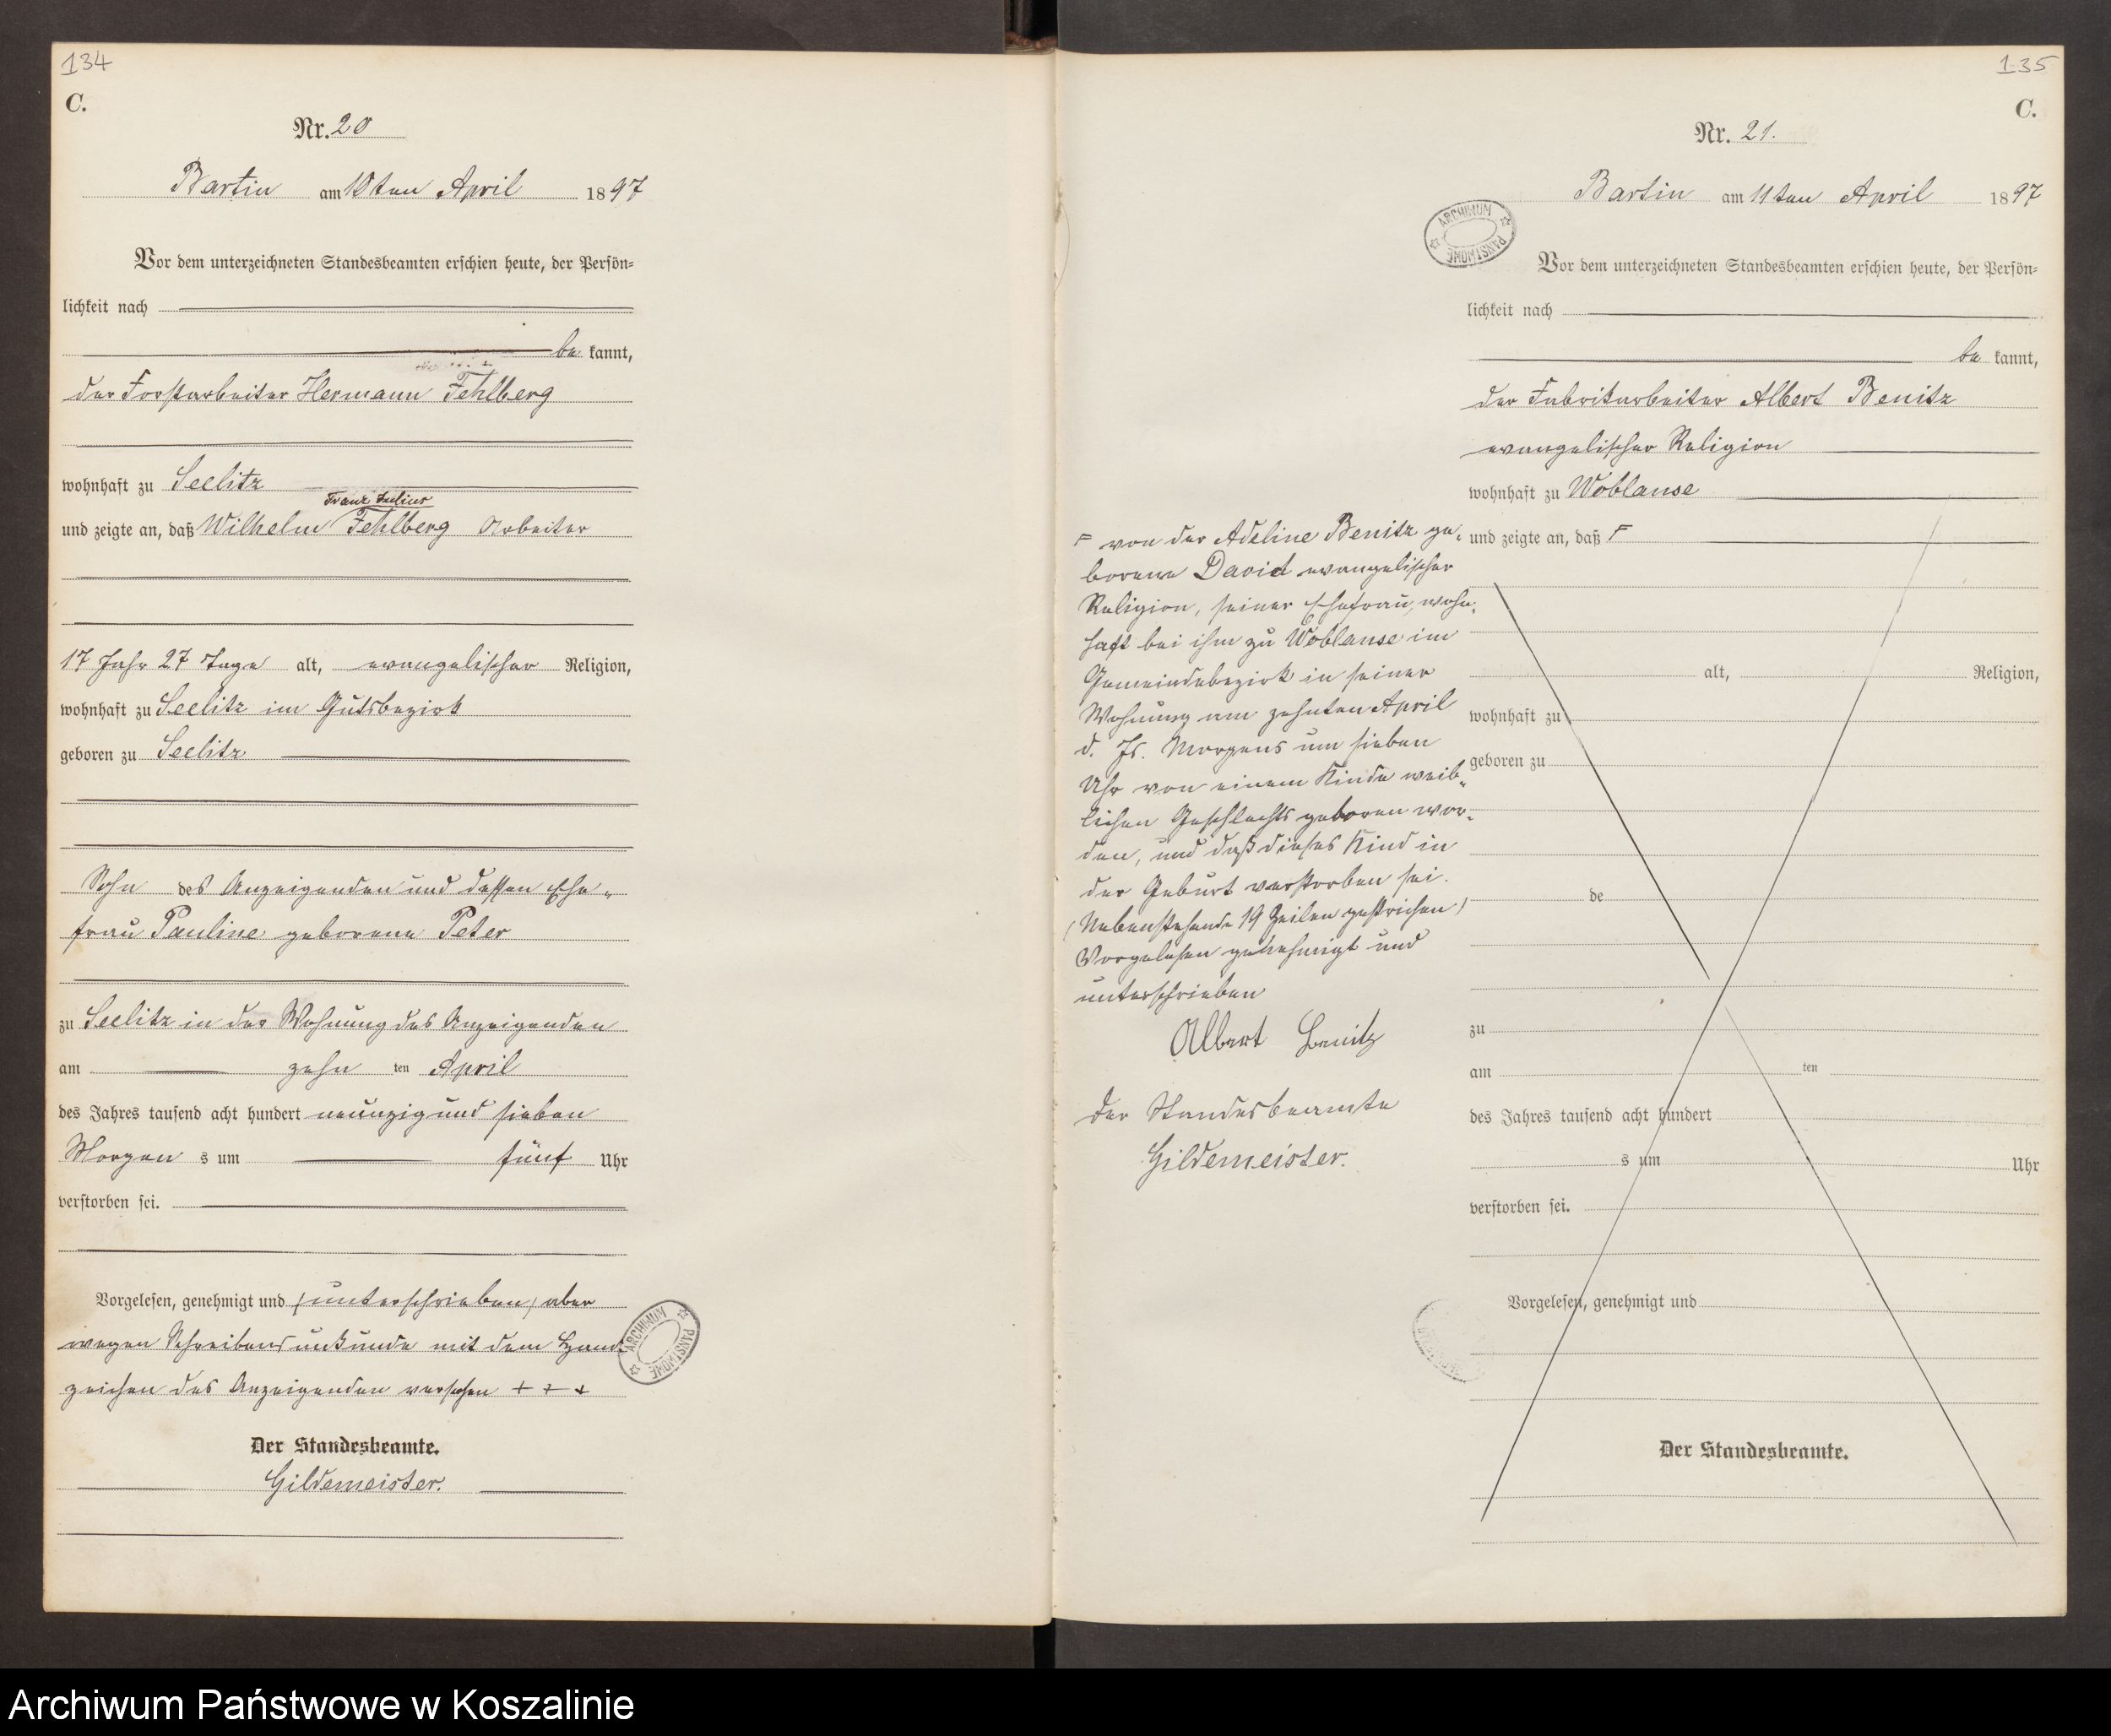 134
C.
Nr. 20
Bartin am 10ten April 1897
Vor dem unterzeichneten Standesbeamten erschien heute, der Persön=
lichkeit nach
be kannt,
der Forstarbeiter Hermann Fehlberg
wohnhaft zu Seelitz
Franz Julius
und zeigte an, daß Wilhelm Fehlberg Arbeiter
17 Jahr 27 Tage alt, evangelischer Religion,
wohnhaft zu Seelitz im Gutsbezirk
geboren zu Seelitz
Sohn des Anzeigenden und dessen Ehe„
frau Pauline geborene Peter
zu Seelitz in der Wohnung des Anzeigenden
am zehn ten April
des Jahres tausend acht hundert neunzig und sieben
Morgen s um fünf Uhr
verstorben sei.
Vorgelesen, genehmigt und (unterschrieben) aber
wegen Schreibensunkunde mit dem Hand„
zeichen des Anzeigenden versehen + + +
Der Standesbeamte.
Gildemeister.
ARCHIWUM PAŃSTWOWE
135
C.
Nr. 21.
Bartin am 11ten April 1897
ARCHIWUM PAŃSTWOWE
Vor dem unterzeichneten Standesbeamten erschien heute, der Persön=
lichkeit nach
be kannt,
der Fabrikarbeiter Albert Benitz
evangelischer Religion
wohnhaft zu Woblanse
und zeigte an, daß F
F von der Adeline Benitz ge„
borene David evangelischer
Religion, seiner Ehefrau, wohn„
haft bei ihm zu Woblanse im
Gemeindebezirk in seiner
Wohnung am zehnten April
d. Js. Morgens um sieben
Uhr von einem Kinde weib„
lichen Geschlechts geboren wor„
den, und daß dieses Kind in
der Geburt verstorben sei.
(Nebenstehende 19 Zeilen gestrichen)
Vorgelesen genehmigt und
unterschrieben
Albert Benitz
Der Standesbeamte
Gildemeister.
alt, Religion,
wohnhaft zu
geboren zu
de
zu
am ten
des Jahres tausend acht hundert
s um Uhr
verstorben sei.
Vorgelesen, genehmigt und
Der Standesbeamte.
Archiwum Państwowe w Koszalinie